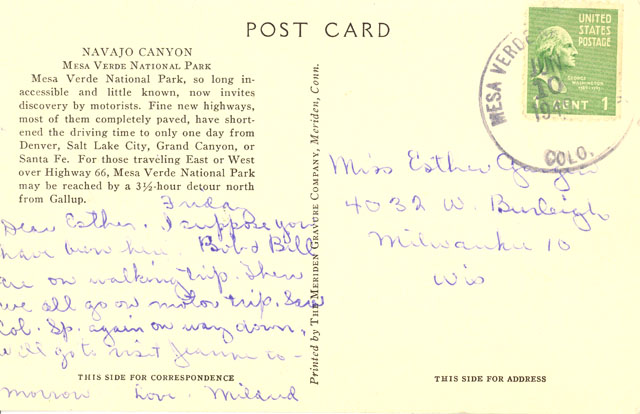 POST CARD
NAVAJO CANYON
MESA VERDE NATIONAL PARK
Mesa Verde National Park, so long in-
accessible and little known, now invites
discovery by motorists. Fine new highways,
most of them completely paved, have short-
ened the driving time to only one day from
Denver, Salt Lake City, Grand Canyon, or
Santa Fe. For those traveling East or West
over Highway 66, Mesa Verde National Park
may be reached by a 3½-hour detour north
from Gallup.
Friday
Dear Esther. I suppose you
have been here. Bob & Bill
are on walking trip. Then
we all go on motor trip. Saw
Col. Sp. again on way down.
Will go to visit Jeanne to-
morrow Love. Mildred
THIS SIDE FOR CORRESPONDENCE
Printed by THE MERIDEN GRAVURE COMPANY, Meriden, Conn.
MESA VERDE
JUN
10
194
COLO.
UNITED
STATES
POSTAGE
GEORGE
WASHINGTON
1789-1797
CENT 1
Miss Esther
4032 W. Burleigh
Milwaukee 10
Wis
THIS SIDE FOR ADDRESS